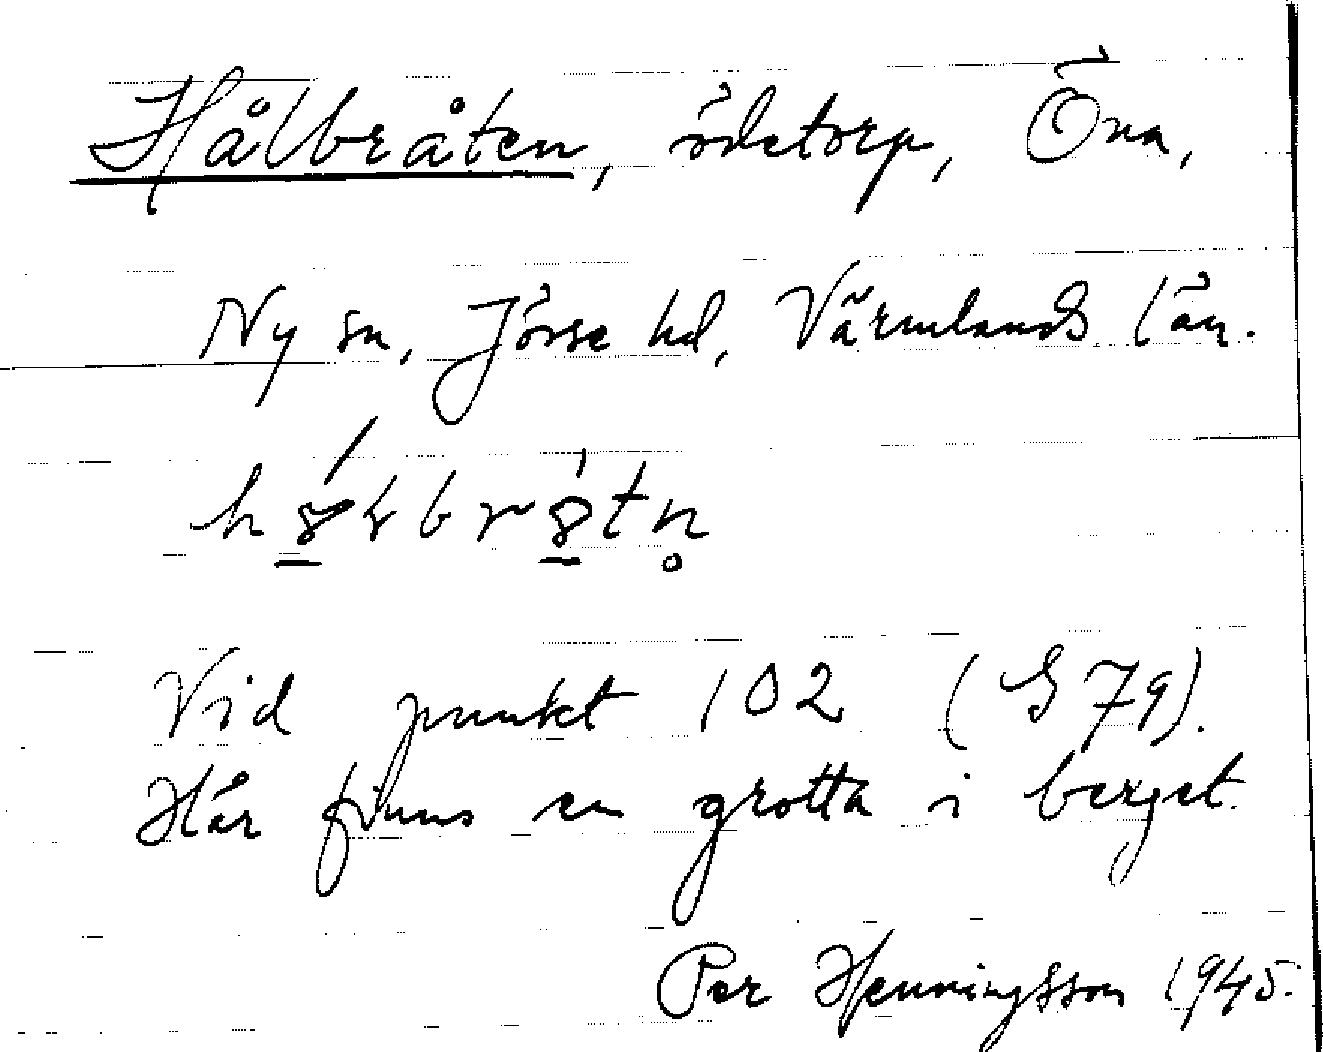 Hålbråten, ödetorp, Öna,
Ny sn, Jösse hd, Värmlands län.
Vid punkt 102 (G 79).
Här finns en grotta i berget.
Per Henningsson 1945.